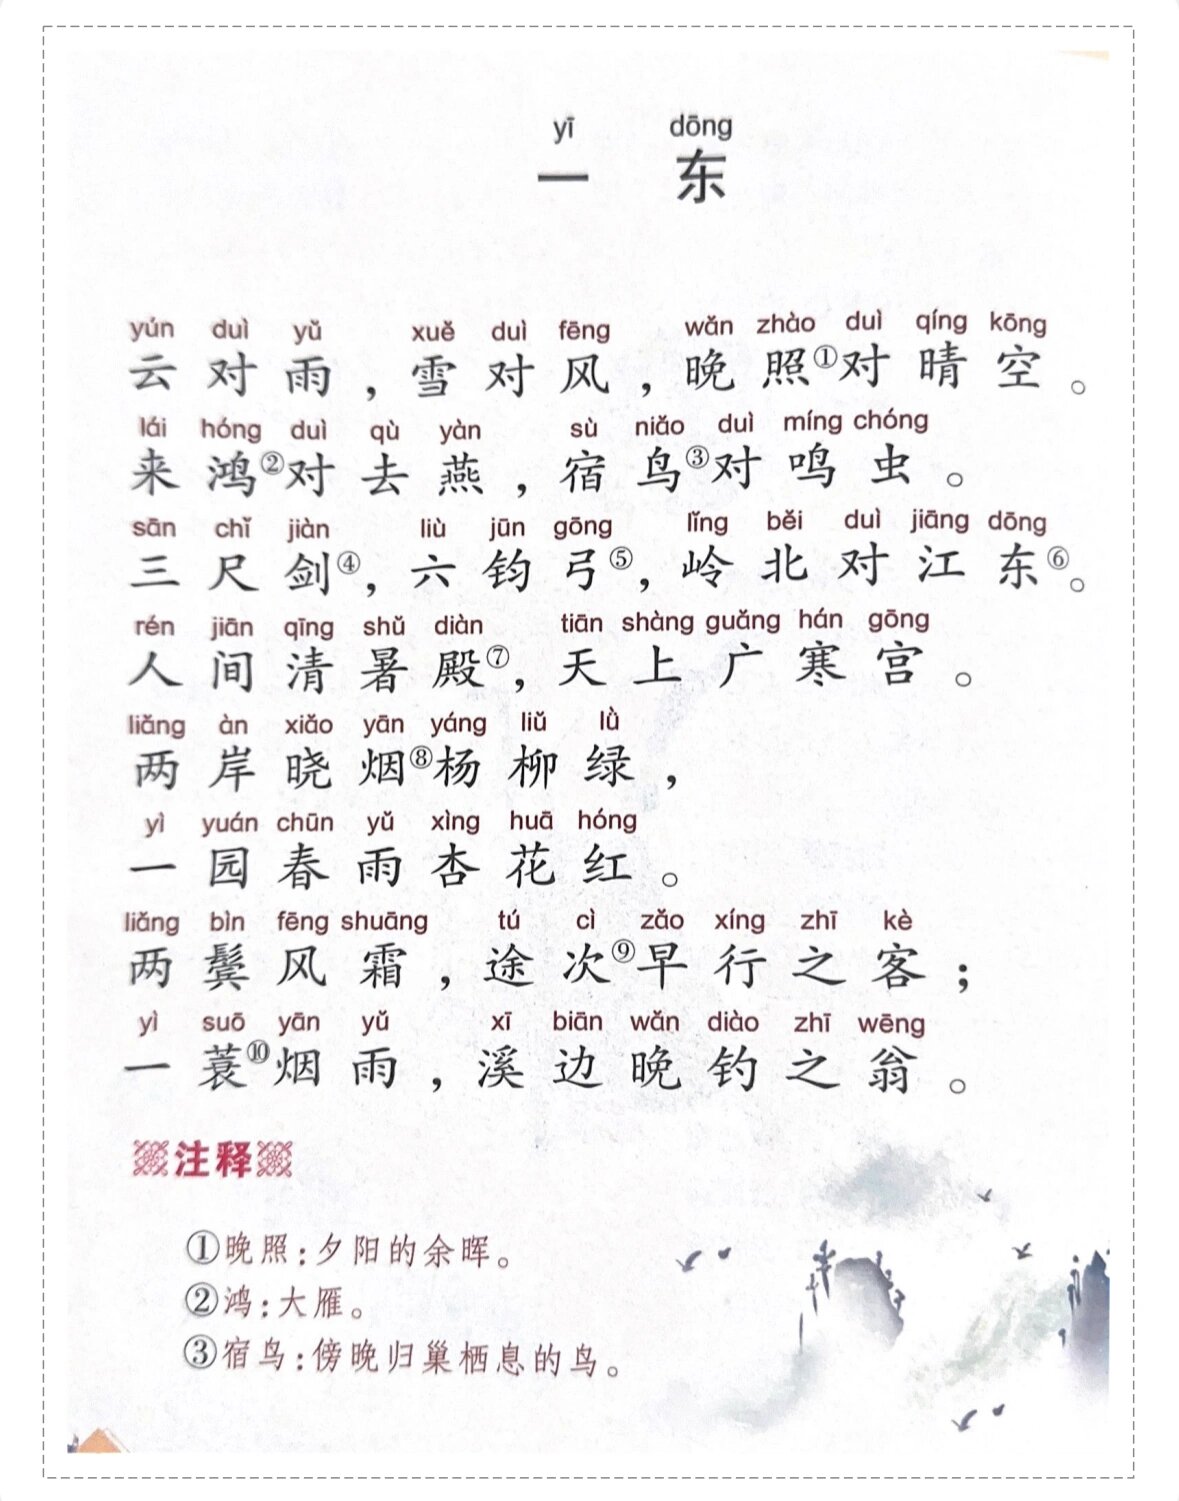 yī dōng
一 东
yún duì yǔ xuě duì fēng wǎn zhào duì qíng kōng
云对雨，雪对风，晚照①对晴空。
lái hóng duì qù yàn sù niǎo duì míng chóng
来鸿②对去燕，宿鸟③对鸣虫。
sān chǐ jiàn liù jūn gōng lǐng běi duì jiāng dōng
三尺剑④，六钧弓⑤，岭北对江东⑥。
rén jiān qīng shǔ diàn tiān shàng guǎng hán gōng
人间清暑殿⑦，天上广寒宫。
liǎng àn xiǎo yān yáng liǔ lǜ
两岸晓烟⑧杨柳绿，
yì yuán chūn yǔ xìng huā hóng
一园春雨杏花红。
liǎng bìn fēng shuāng tú cì zǎo xíng zhī kè
两鬓风霜，途次⑨早行之客；
yì suō yān yǔ xī biān wǎn diào zhī wēng
一蓑⑩烟雨，溪边晚钓之翁。
注释
①晚照：夕阳的余晖。
②鸿：大雁。
③宿鸟：傍晚归巢栖息的鸟。